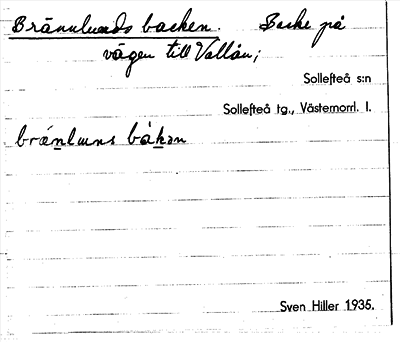 Brännlunds backen. Backe på
vägen till Vallån;
Sollefteå s:n
Sollefteå tg., Västernorrl. l.
bránluns bákən
Sven Hiller 1935.